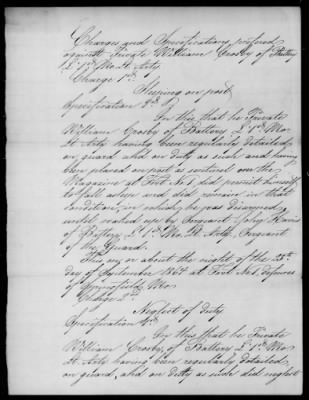 Charges and Specifications preferred
against Private William Crosby of Battery
L 1st Mo. Lt. Arty
Charge 1st
Sleeping on post
Specification 1st
In this that he Private
William Crosby of Battery L 1st Mo
Lt. Arty having been regularly detailed
on guard and on duty as such and having
been placed on post as sentinel on the
Magazine at Fort No 1 did permit himself
to fall asleep and did remain in that
condition in which he was discovered
until waked up by Sergeant John
of Battery L 1st Mo. Lt. Artly, Sergeant
of the Guard.
This on or about the night of the 25th
day of September 1864 at Fort No 1, defences
of Springfield Mo
Charge 2nd
Neglect of Duty
Specification 1st
In this that he Private
William Crosby of Battery L 1st Mo
Lt. Arty having been regularly detailed
on guard, and on duty as such did neglect